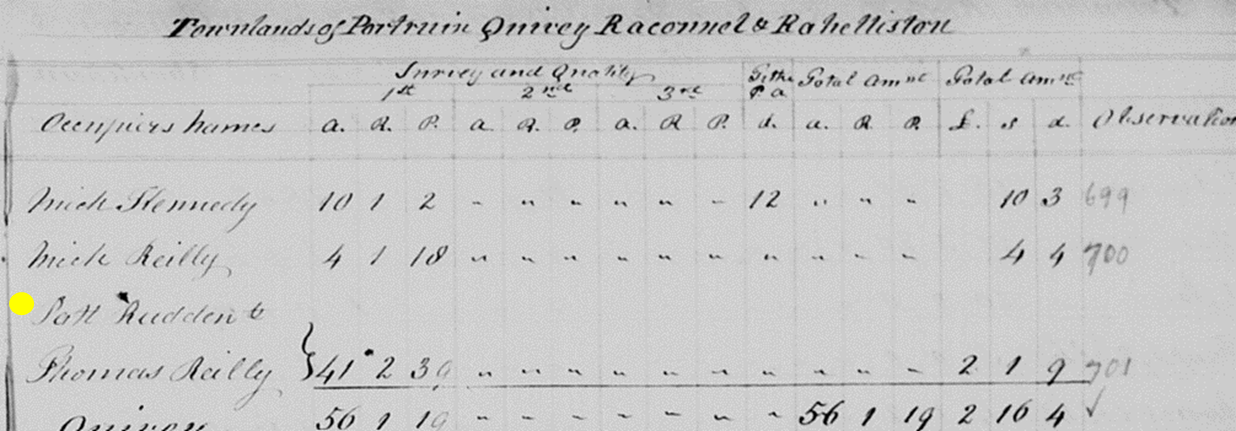 Townlands of Portruin Quivey Raconnel & Rahelliston
Survey and Quality Tithe P. a Total Amnt Total Amnt
1st 2nd 3rd
Occupiers Names a. R. P. a. R. P. a. R P. d. a. R. P. £. s d. Observation
Mich Kennedy 10 1 2 " " " " " " 12 " " " 10 3 699
Mich Reilly 4 1 18 " " " " " " " " " " 4 4 700
Patt Rudden &
Thomas Reilly } 41 2 39 " " " " " " " " " " 2 1 9 701
Quivey 56 1 19 " " " " " " " 56 1 19 2 16 4 ✓